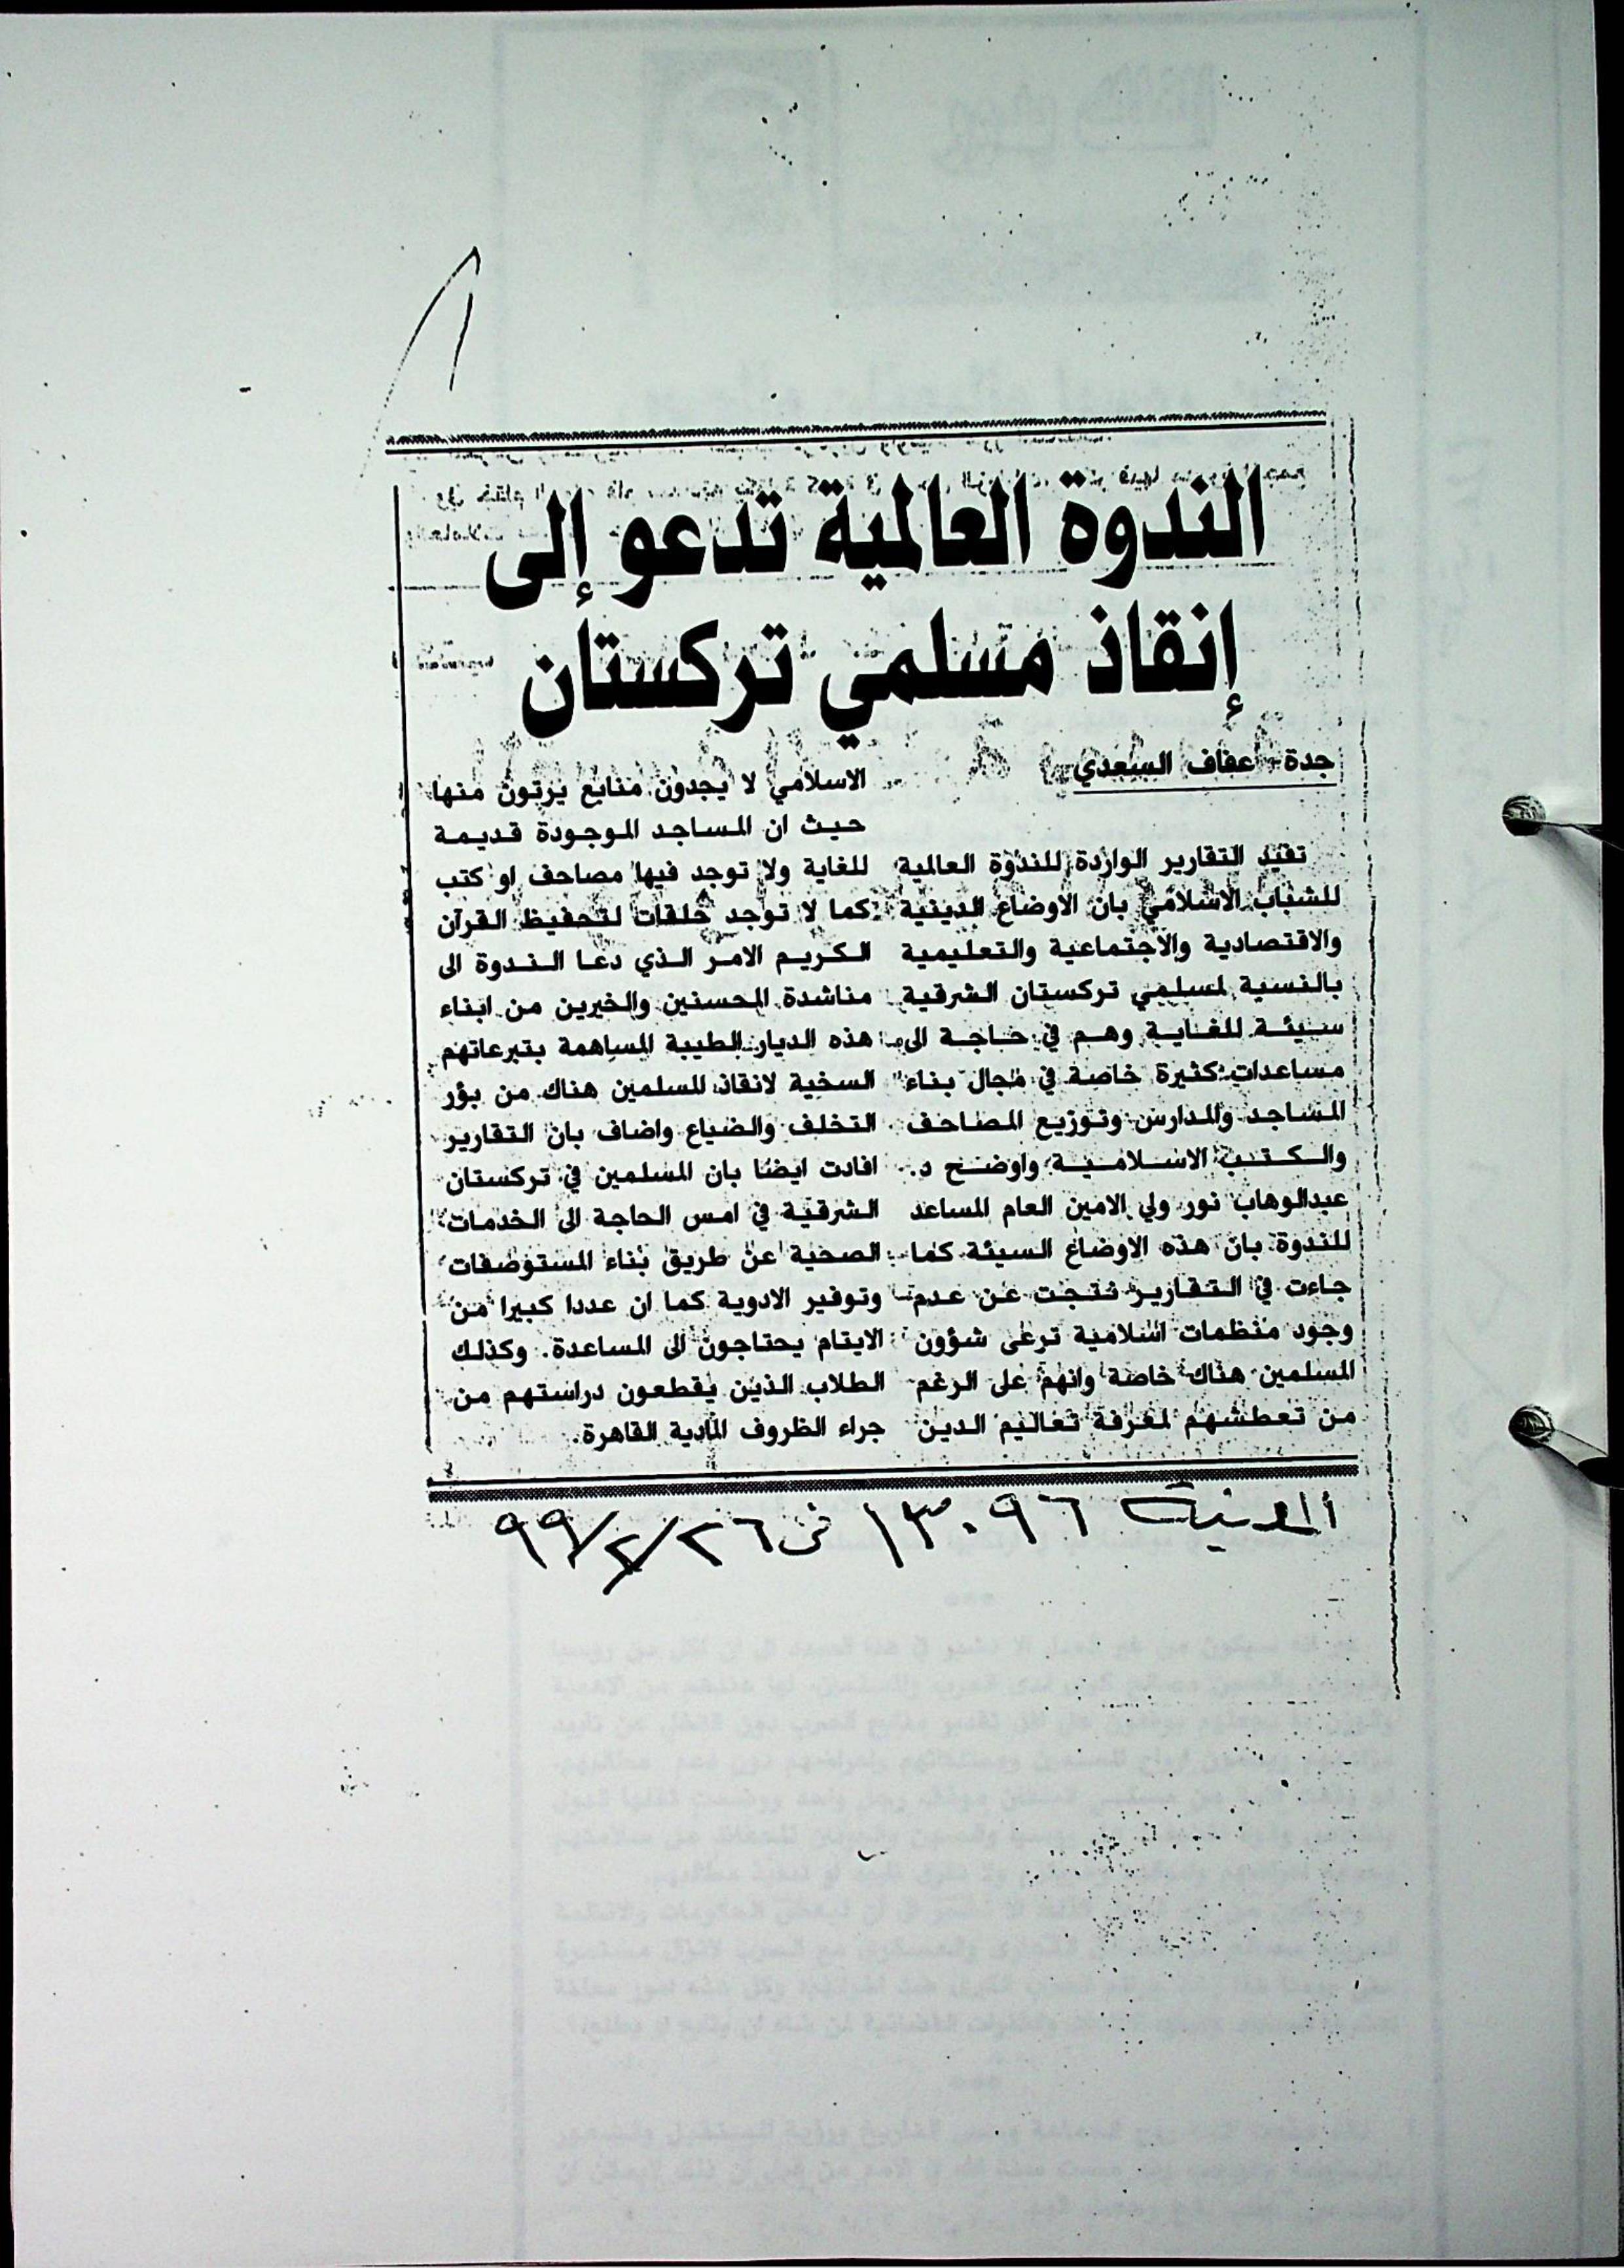 الندوة العالمية تدعو إلى
إنقاذ مسلمي تركستان
جدة - عفاف السعدي
تفيد التقارير الواردة للندوة العالمية
للشباب الاسلامي بان الأوضاع الدينية
والاقتصادية والاجتماعية والتعليمية
بالنسبة لمسلمي تركستان الشرقية
سيئة للغاية وهم في حاجة الى
مساعدات كثيرة خاصة في مجال بناء
المساجد والمدارس وتوزيع المصاحف
والكتب الاسلامية واوضح د.
عبدالوهاب نور ولي الامين العام المساعد
للندوة بان هذه الاوضاع السيئة كما
جاءت في التقارير نتجت عن عدم
وجود منظمات اسلامية ترعى شؤون
المسلمين هناك خاصة وانهم على الرغم
من تعطشهم لمعرفة تعاليم الدين
الاسلامي لا يجدون منابع يرتون منها
حيث ان المساجد الموجودة قديمة
للغاية ولا توجد فيها مصاحف او كتب
كما لا توجد حلقات لتحفيظ القرآن
الكريم الامر الذي دعا الندوة الى
مناشدة المحسنين والخيرين من ابناء
هذه الديار الطيبة المساهمة بتبرعاتهم
السخية لانقاذ المسلمين هناك من بؤر
التخلف والضياع واضاف بان التقارير
افادت ايضا بان المسلمين في تركستان
الشرقية في امس الحاجة الى الخدمات
الصحية عن طريق بناء المستوصفات
وتوفير الادوية كما ان عددا كبيرا من
الايتام يحتاجون الى المساعدة. وكذلك
الطلاب الذين يقطعون دراستهم من
جراء الظروف المادية القاهرة.
المدينة ١٣٠٩٦ في ٢٦/٢/٩٩